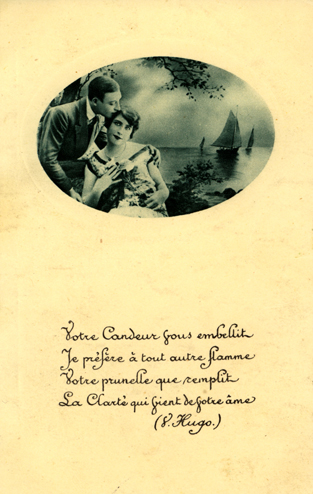 Votre Candeur vous embellit
Je préfère à tout autre flamme
Votre prunelle que remplit
La Clarté qui vient de votre âme
(V. Hugo.)